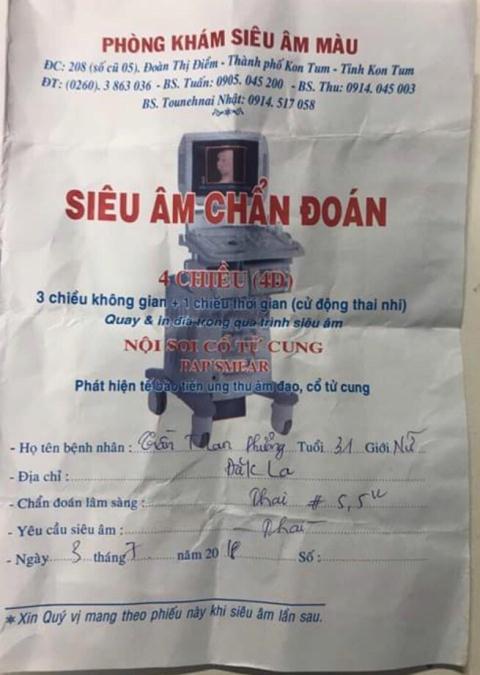 PHÒNG KHÁM SIÊU ÂM MÀU
ĐC: 208 (số cũ 05). Đoàn Thị Điểm - Thành phố Kon Tum - Tỉnh Kon Tum
ĐT: (0260). 3 863 036 - BS. Tuấn: 0905. 045 200 - BS. Thu: 0914. 045 003
BS. Tounehnai Nhật: 0914. 517 058
SIÊU ÂM CHẨN ĐOÁN
4 CHIỀU (4D)
3 chiều không gian + 1 chiều thời gian (cử động thai nhi)
Quay & in đĩa trong quá trình siêu âm
NỘI SOI CỔ TỬ CUNG
PAP'SMEAR
Phát hiện tế bào tiền ung thư âm đạo, cổ tử cung
- Họ tên bệnh nhân : Phượng Tuổi 31 Giới Nữ
- Địa chỉ : Đăk La
- Chẩn đoán lâm sàng : Thai # 5,5
- Yêu cầu siêu âm : Thai
- Ngày 3 tháng 7 năm 2018 Số :
* Xin Quý vị mang theo phiếu này khi siêu âm lần sau.